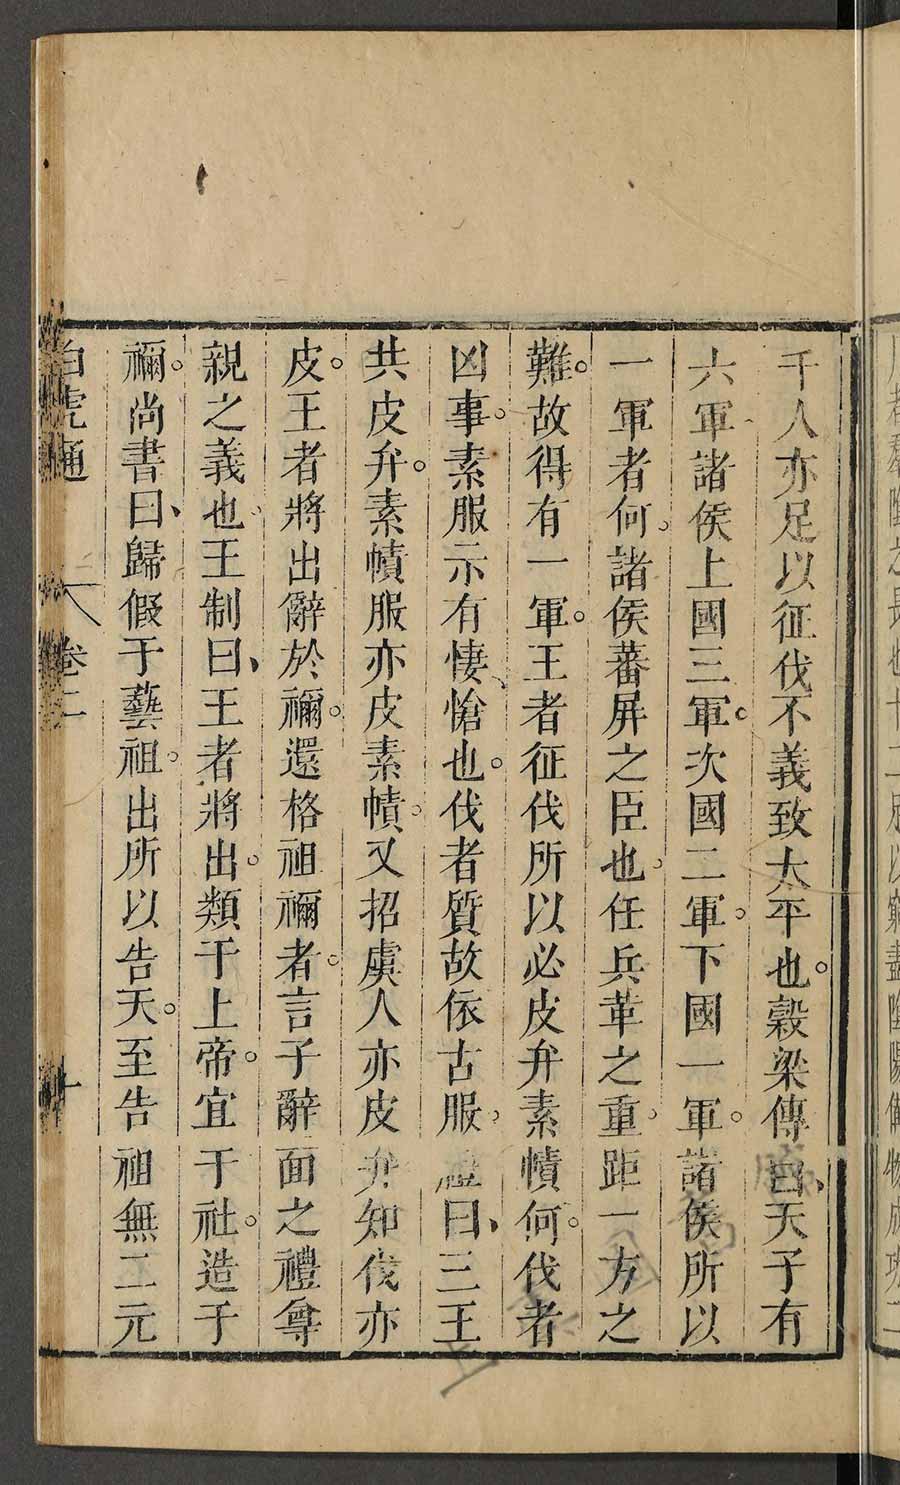 千人亦足以征伐不義致太平也。穀梁傳曰、天子有
六軍諸侯上國三軍。次國二軍。下國一軍。諸侯所以
一軍者何。諸侯蕃屏之臣也。任兵革之重。距一方之
難。故得有一軍。王者征伐所以必皮弁素幘何。伐者
凶事。素服示有悽愴也。伐者質故依古服。禮曰、三王
共皮弁。素幘服亦皮素幘。又招虞人亦皮弁知伐亦
皮。王者將出辭於禰。還格祖禰者。言子辭面之禮尊
親之義也。王制曰、王者將出。類于上帝。宜于社。造于
禰。尚書曰、歸假于藝祖。出所以告天。至告祖無二元
白虎通 卷二 十